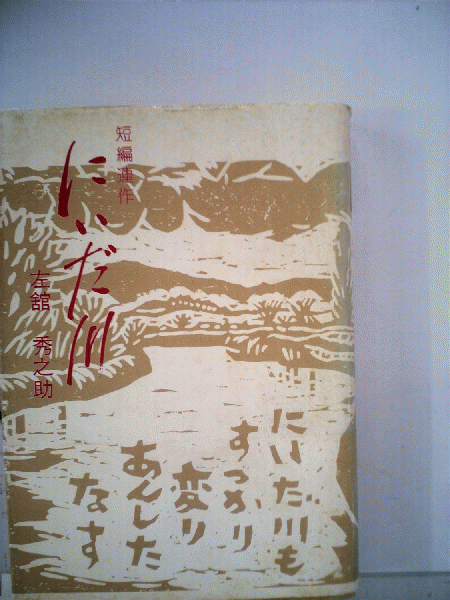 短編連作
にいだ川
左舘 秀之助
にいだ川も
すっかり
変り
あんした
なす